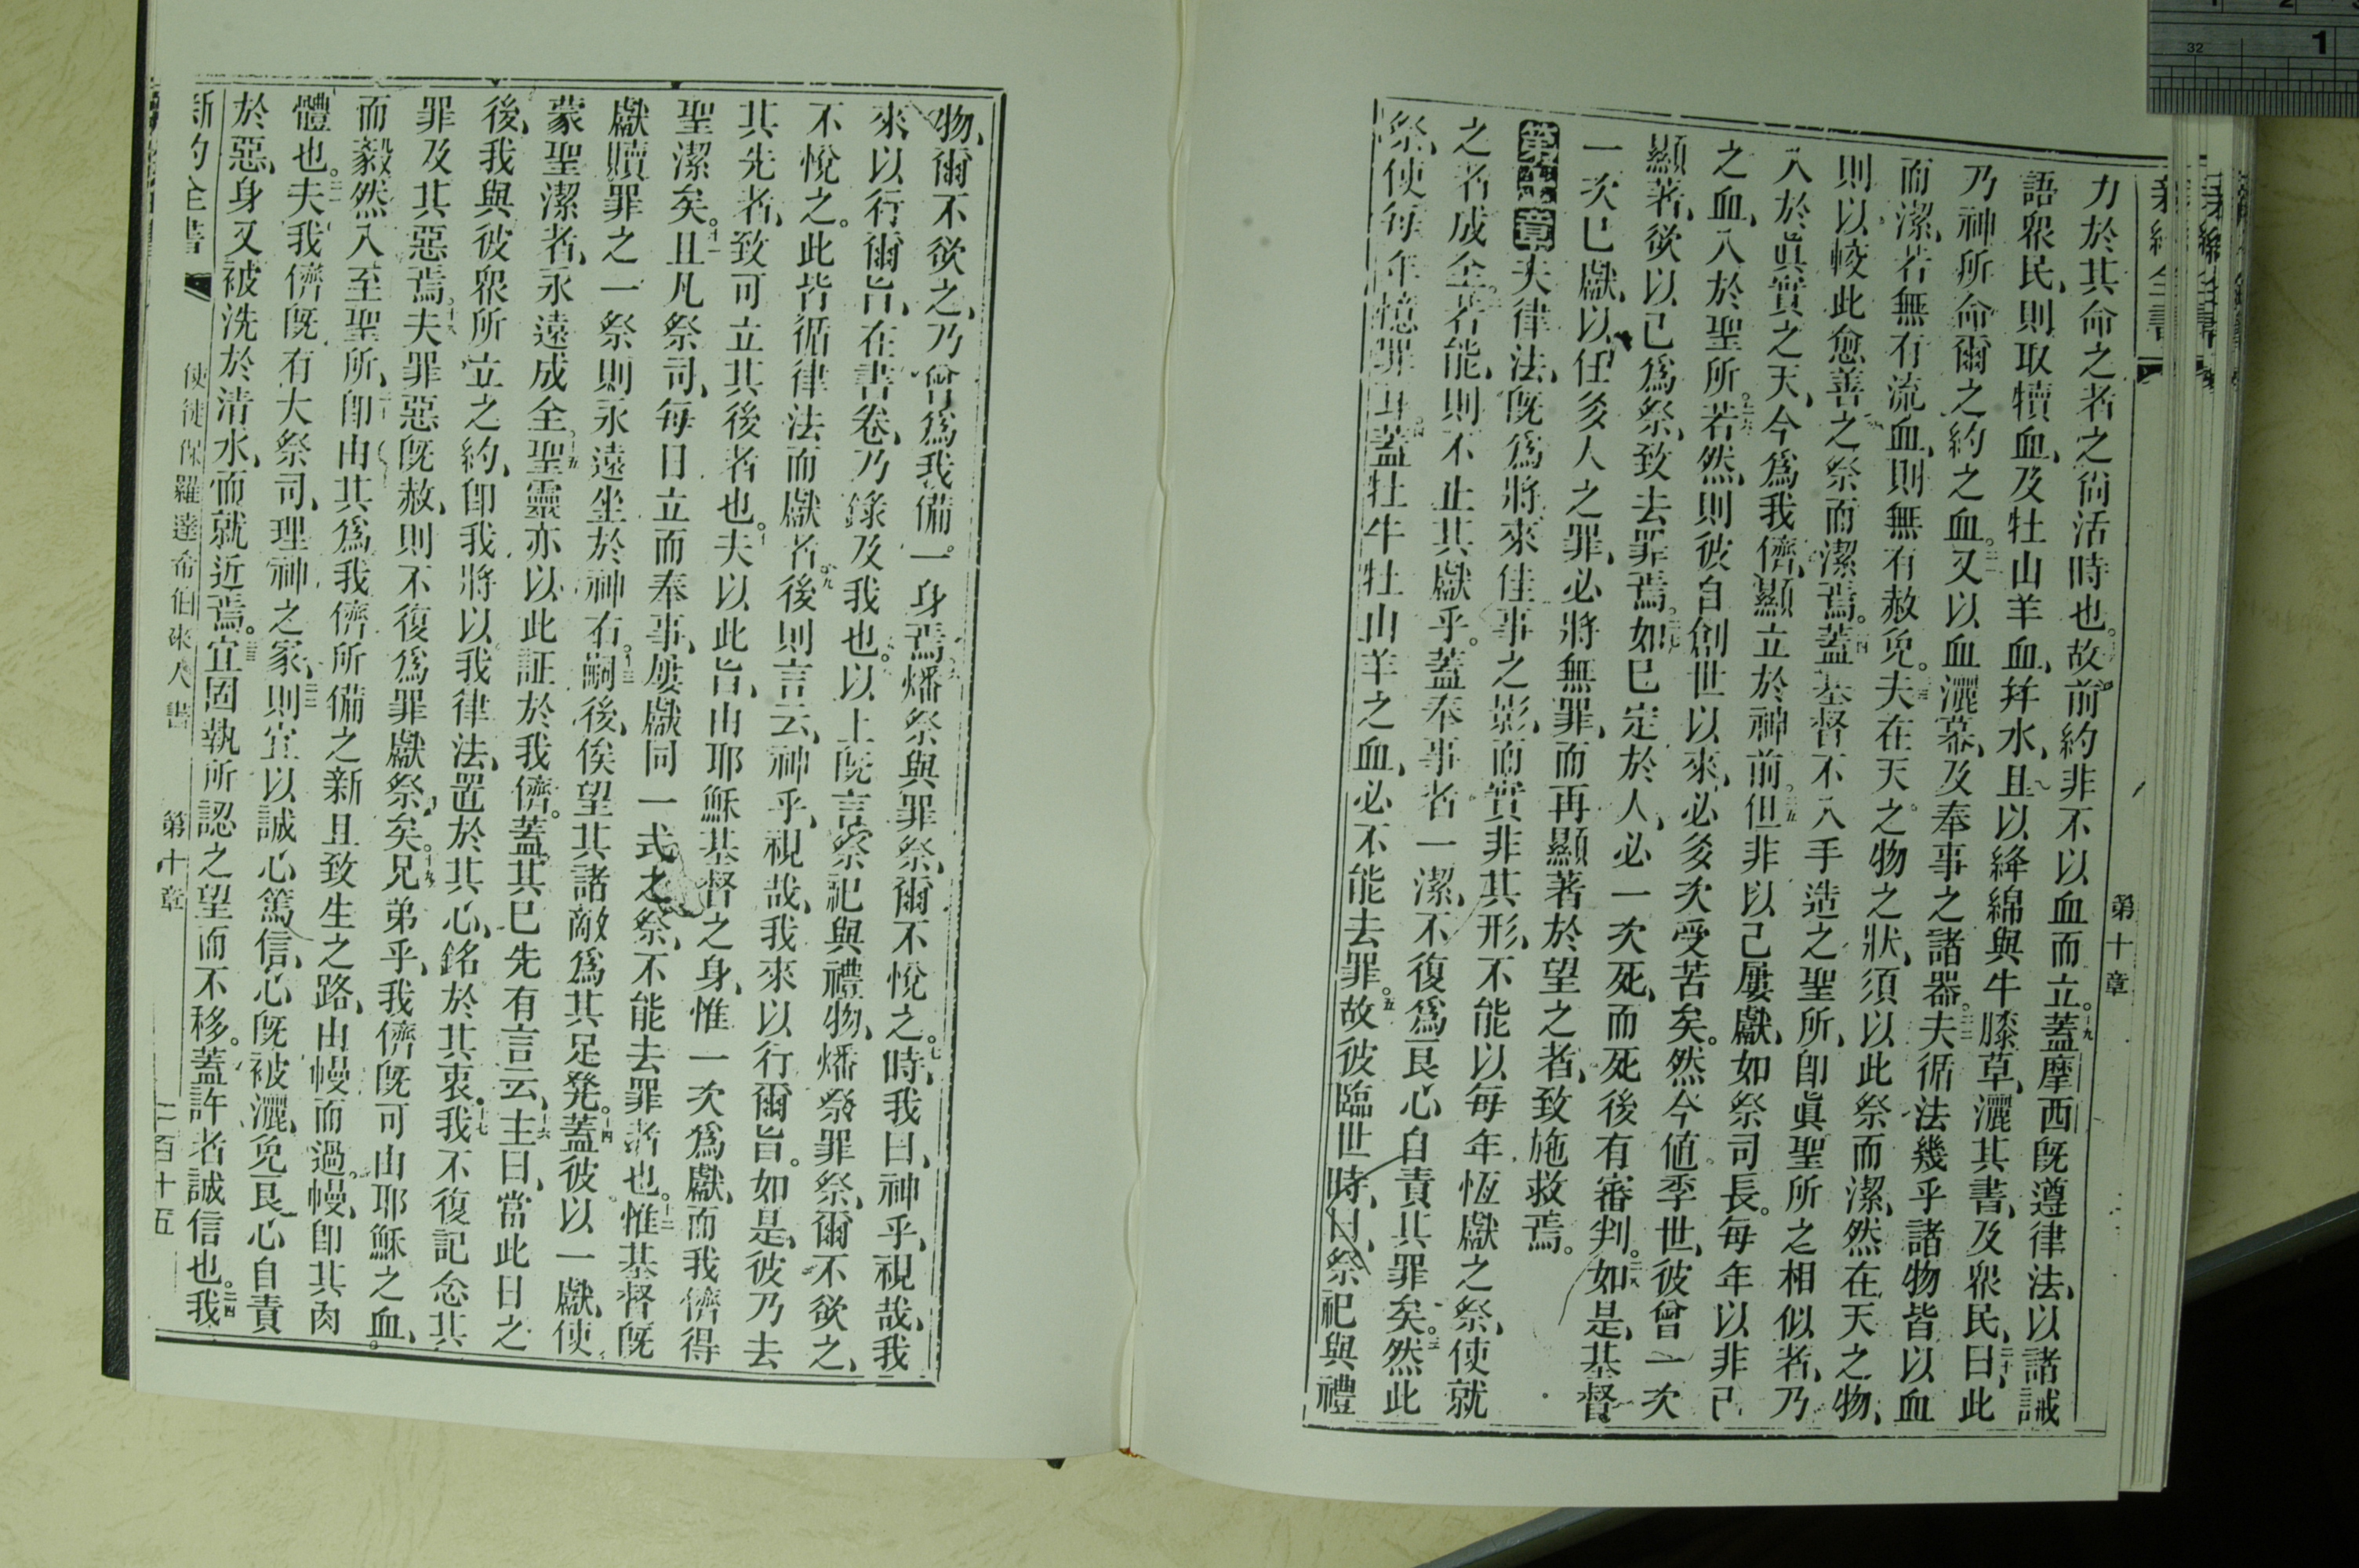 新約全書
第十章
力於其命之者之尙活時也。故前約非不以血而立。十九蓋摩西旣遵律法、以諸誡
語衆民、則取犢血、及牡山羊血、幷水、且以絳綿與牛膝草、灑其書、及衆民、二十曰、此
乃神所命爾之約之血。二一又以血灑幕、及奉事之諸器。二二夫循法幾乎諸物皆以血
而潔、若無有流血、則無有赦免。二三夫在天之物之狀、須以此祭而潔、然在天之物、
則以較此愈善之祭而潔焉。二四蓋基督不入手造之聖所、卽眞聖所之相似者、乃
入於眞實之天、今爲我儕、顯立於神前。二五但非以己屢獻、如祭司長。每年以非己
之血、入於聖所。二六若然、則彼自創世以來、必多次受苦矣。然今値季世、彼曾一次
顯著、欲以己爲祭、致去罪焉。二七如已定於人、必一次死、而死後有審判。二八如是、基督
一次已獻、以任多人之罪、必將無罪、而再顯著於望之者、致施救焉。
第十章夫律法、旣爲將來佳事之影、而實非其形、不能以每年恆獻之祭、使就
之者成全。二若能、則不止其獻乎。蓋奉事者一潔、不復爲良心自責其罪矣。三然此
祭、使每年憶罪耳。四蓋牡牛牡山羊之血、必不能去罪。五故彼臨世時、曰、祭祀與禮
物、爾不欲之、乃曾爲我備一身焉。六燔祭與罪祭、爾不悅之。七時、我曰、神乎、視哉、我
來以行爾旨、在書卷、乃錄及我也。八以上旣言祭祀與禮物、燔祭罪祭、爾不欲之、
不悅之。此皆循律法而獻者。九後則言云、神乎、視哉、我來以行爾旨。如是、彼乃去
其先者、致可立其後者也。十夫以此旨、由耶穌基督之身、惟一次爲獻、而我儕得
聖潔矣。十一且凡祭司、每日立而奉事、屢獻同一式之祭、不能去罪者也。十二惟基督旣
獻贖罪之一祭、則永遠坐於神右。十三嗣後、俟望其諸敵爲其足凳。十四蓋彼以一獻、使
蒙聖潔者、永遠成全。十五聖靈亦以此証於我儕。蓋其已先有言云、十六主曰、當此日之
後、我與彼衆所立之約、卽我將以我律法、置於其心、銘於其衷。十七我不復記念其
罪及其惡焉。十八夫罪惡旣赦、則不復爲罪獻祭矣。十九兄弟乎、我儕旣可由耶穌之血、
而毅然入至聖所、二十卽由其爲我儕所備之新且致生之路、由幔而過。幔、卽其肉
體也。二一夫我儕旣有大祭司、理神之家、二二則宜以誠心篤信、心旣被灑、免良心自責
於惡、身又被洗於清水、而就近焉。二三宜固執所認之望而不移。蓋許者誠信也。二四我
新約全書
使徒保羅達希伯來人書
第十章
二百十五